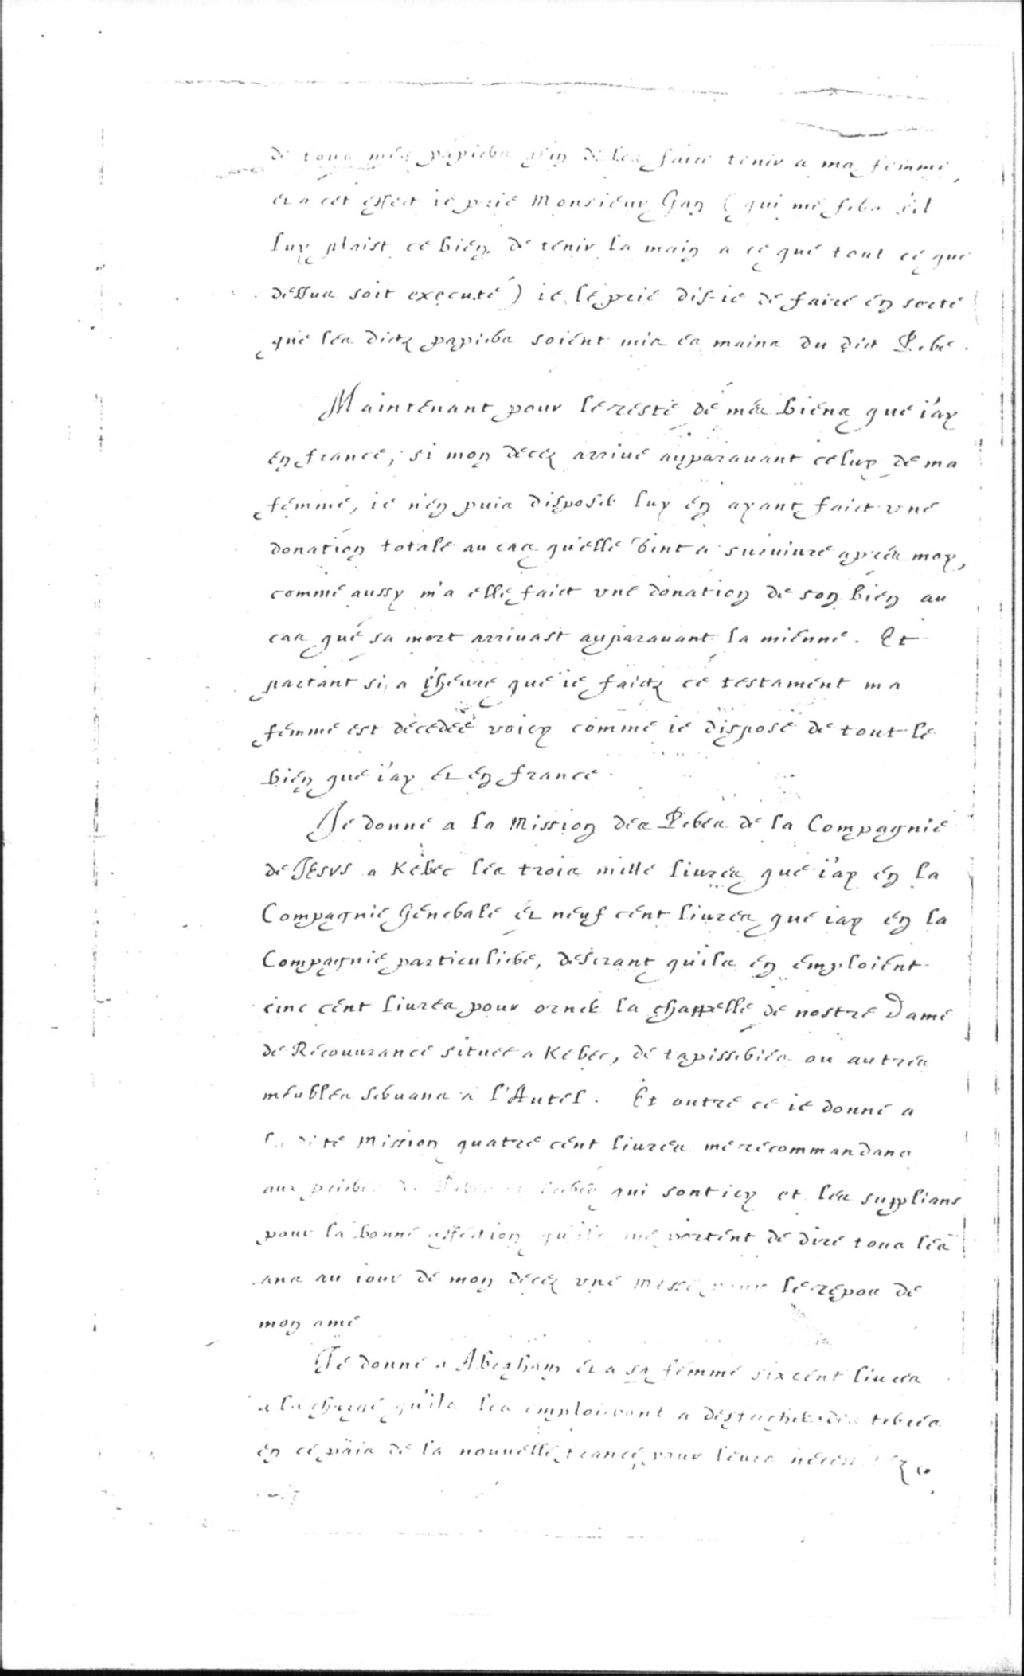 de tous mes papiers afin de les faire tenir a ma femme,
et a cet effect ie prie Monsieur Gan (qui me fera s'il
luy plaist ce bien de tenir la main a ce que tout ce que
dessus soit executé) ie le prie dis-ie de faire en sorte
que les dictz papiers soient mis es mains du dict Pere.
Maintenant pour le reste de mes biens que i'ay
en france, si mon decez arriue auparauant celuy de ma
femme, ie n'en puis disposer luy en ayant faict vne
donation totale au cas qu'elle vint a suruiure apres moy,
comme aussy m'a elle faict vne donation de son bien au
cas que sa mort arriuast auparauant la mienne. Et
partant si a l'heure que ie faictz ce testament ma
femme est decedeé voicy comme ie dispose de tout le
bien que i'ay et en france.
Je donne a la Mission des Peres de la Compagnie
de Jesvs a Kebec les trois mille liures que i'ay en la
Compagnie Generale et neuf cent liures que iay en la
Compagnie particuliere, desirant qu'ils en emploient
cinc cent liures pour orner la chappelle de nostre Dame
de Recouurance situeé a Kebec, de tapisseries ou autres
meubles seruans a l'Autel. Et outre ce ie donne a
la dite Mission quatre cent liures me recommandans
aux prieres qui sont icy et les supplians
pour la bonne affection qu'ils me portent de dire tous les
ans au iour de mon decez vne messe pour le repos de
mon ame
Je donne a Abraham et a sa femme six cent liures
a la charge qu'ils les emploieront a desfricher des terres
en ce païs de la nouuelle france pour leurs